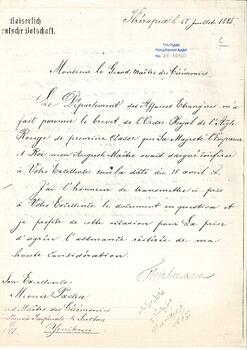 Kaiserlich
Deutsche Botschaft.
Thérapia le 27 Juillet 188
Monsieur le Grand Maître des Cérémonies
Le Département des Affaires Etrangères m'a
fait parvenir le brevet de l'Ordre Royal de l'Aigle
Rouge de première classe que Sa Majesté l'Empereur
et Roi mon Auguste Maître avait daigné conférer
à Votre Excellence sous la date du 18 avril
J'ai l'honneur de transmettre ci près
à Votre Excellence le document en question et
je profite de cette occasion pour La prier
d'agréer l'assurance réitérée de ma
haute considération.
Son Excellence
Munir Pacha
Maître des Cérémonies
de Sa Majesté Impériale le Sultan